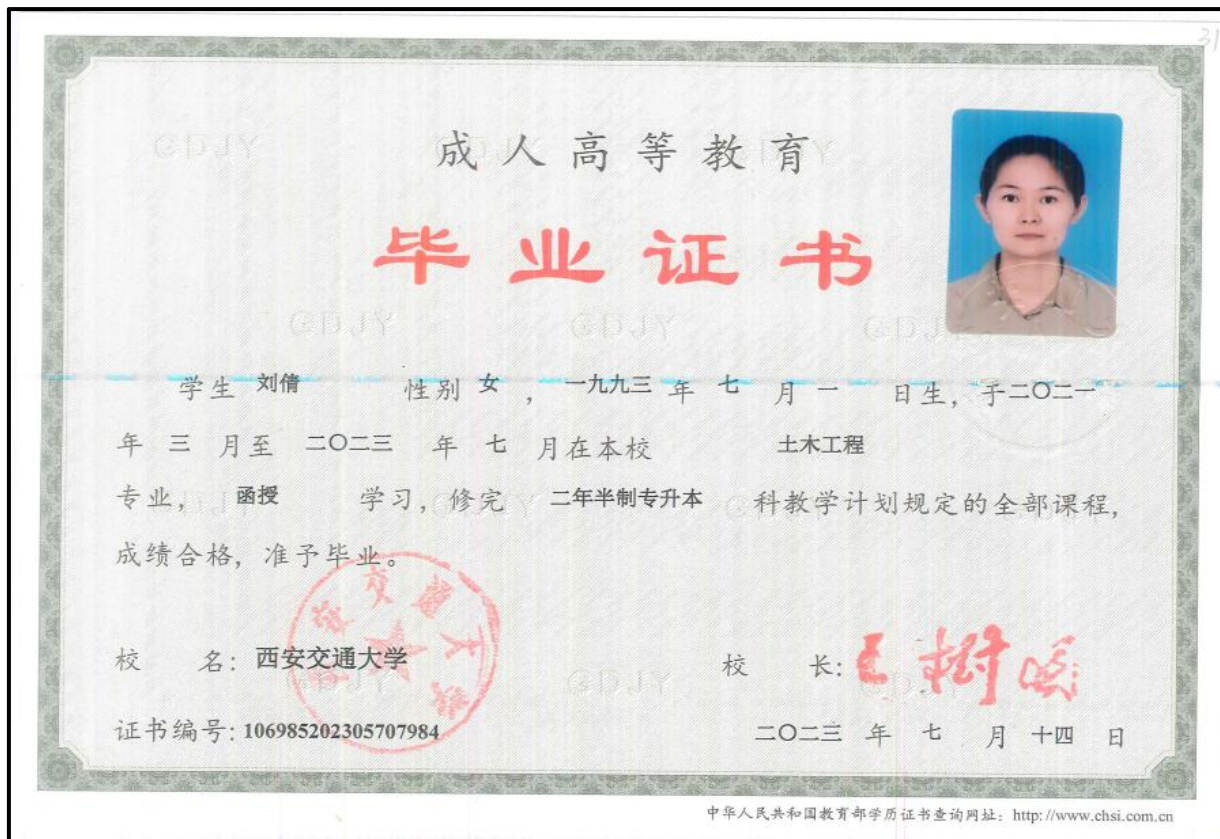 31
成人高等教育
毕业证书
学生 刘倩 性别 女 , 一九九三 年 七 月 一 日生, 于二〇二一
年 三 月至 二〇二三 年 七 月在本校 土木工程
专业, 函授 学习, 修完 二年半制专升本 科教学计划规定的全部课程,
成绩合格, 准予毕业。
校 名: 西安交通大学
校 长: 王树国
证书编号: 106985202305707984
二〇二三 年 七 月 十四 日
中华人民共和国教育部学历证书查询网址: http://www.chsi.com.cn